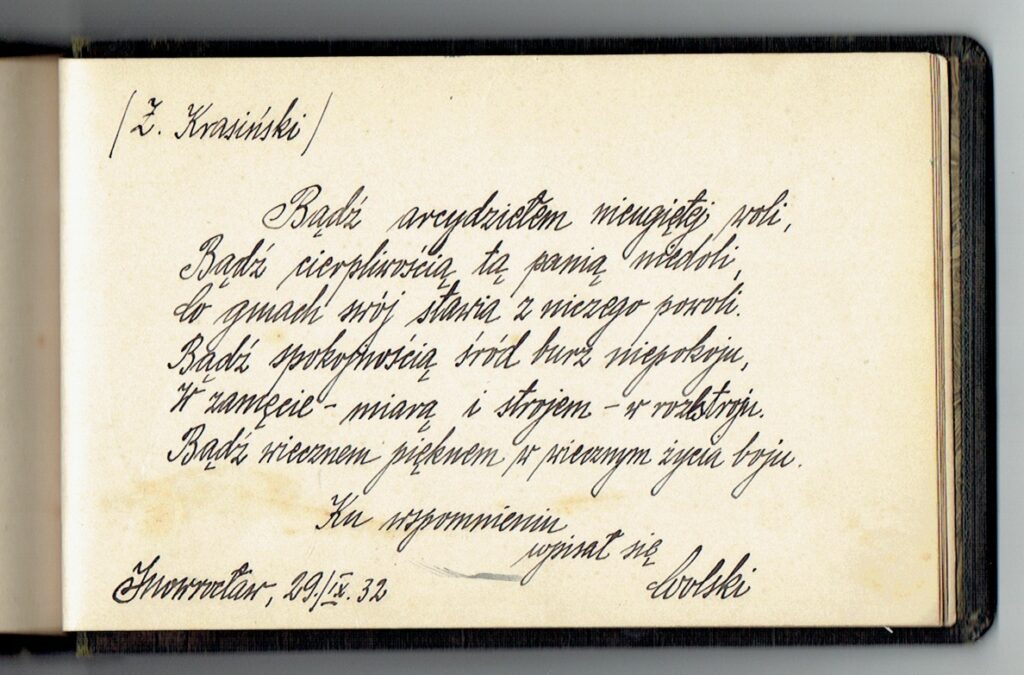 (Z. Krasiński)
Bądź arcydziełem nieugiętej woli,
Bądź cierpliwością tą panią niedoli,
Co gmach swój stawia z niczego powoli.
Bądź spokojnością śród burz niepokoju,
W zamęcie - miarą i strojem - w rozstroju.
Bądź wiecznem pięknem w wiecznym życia boju.
Ku wspomnieniu
wpisał się
Inowrocław, 29./IX. 32